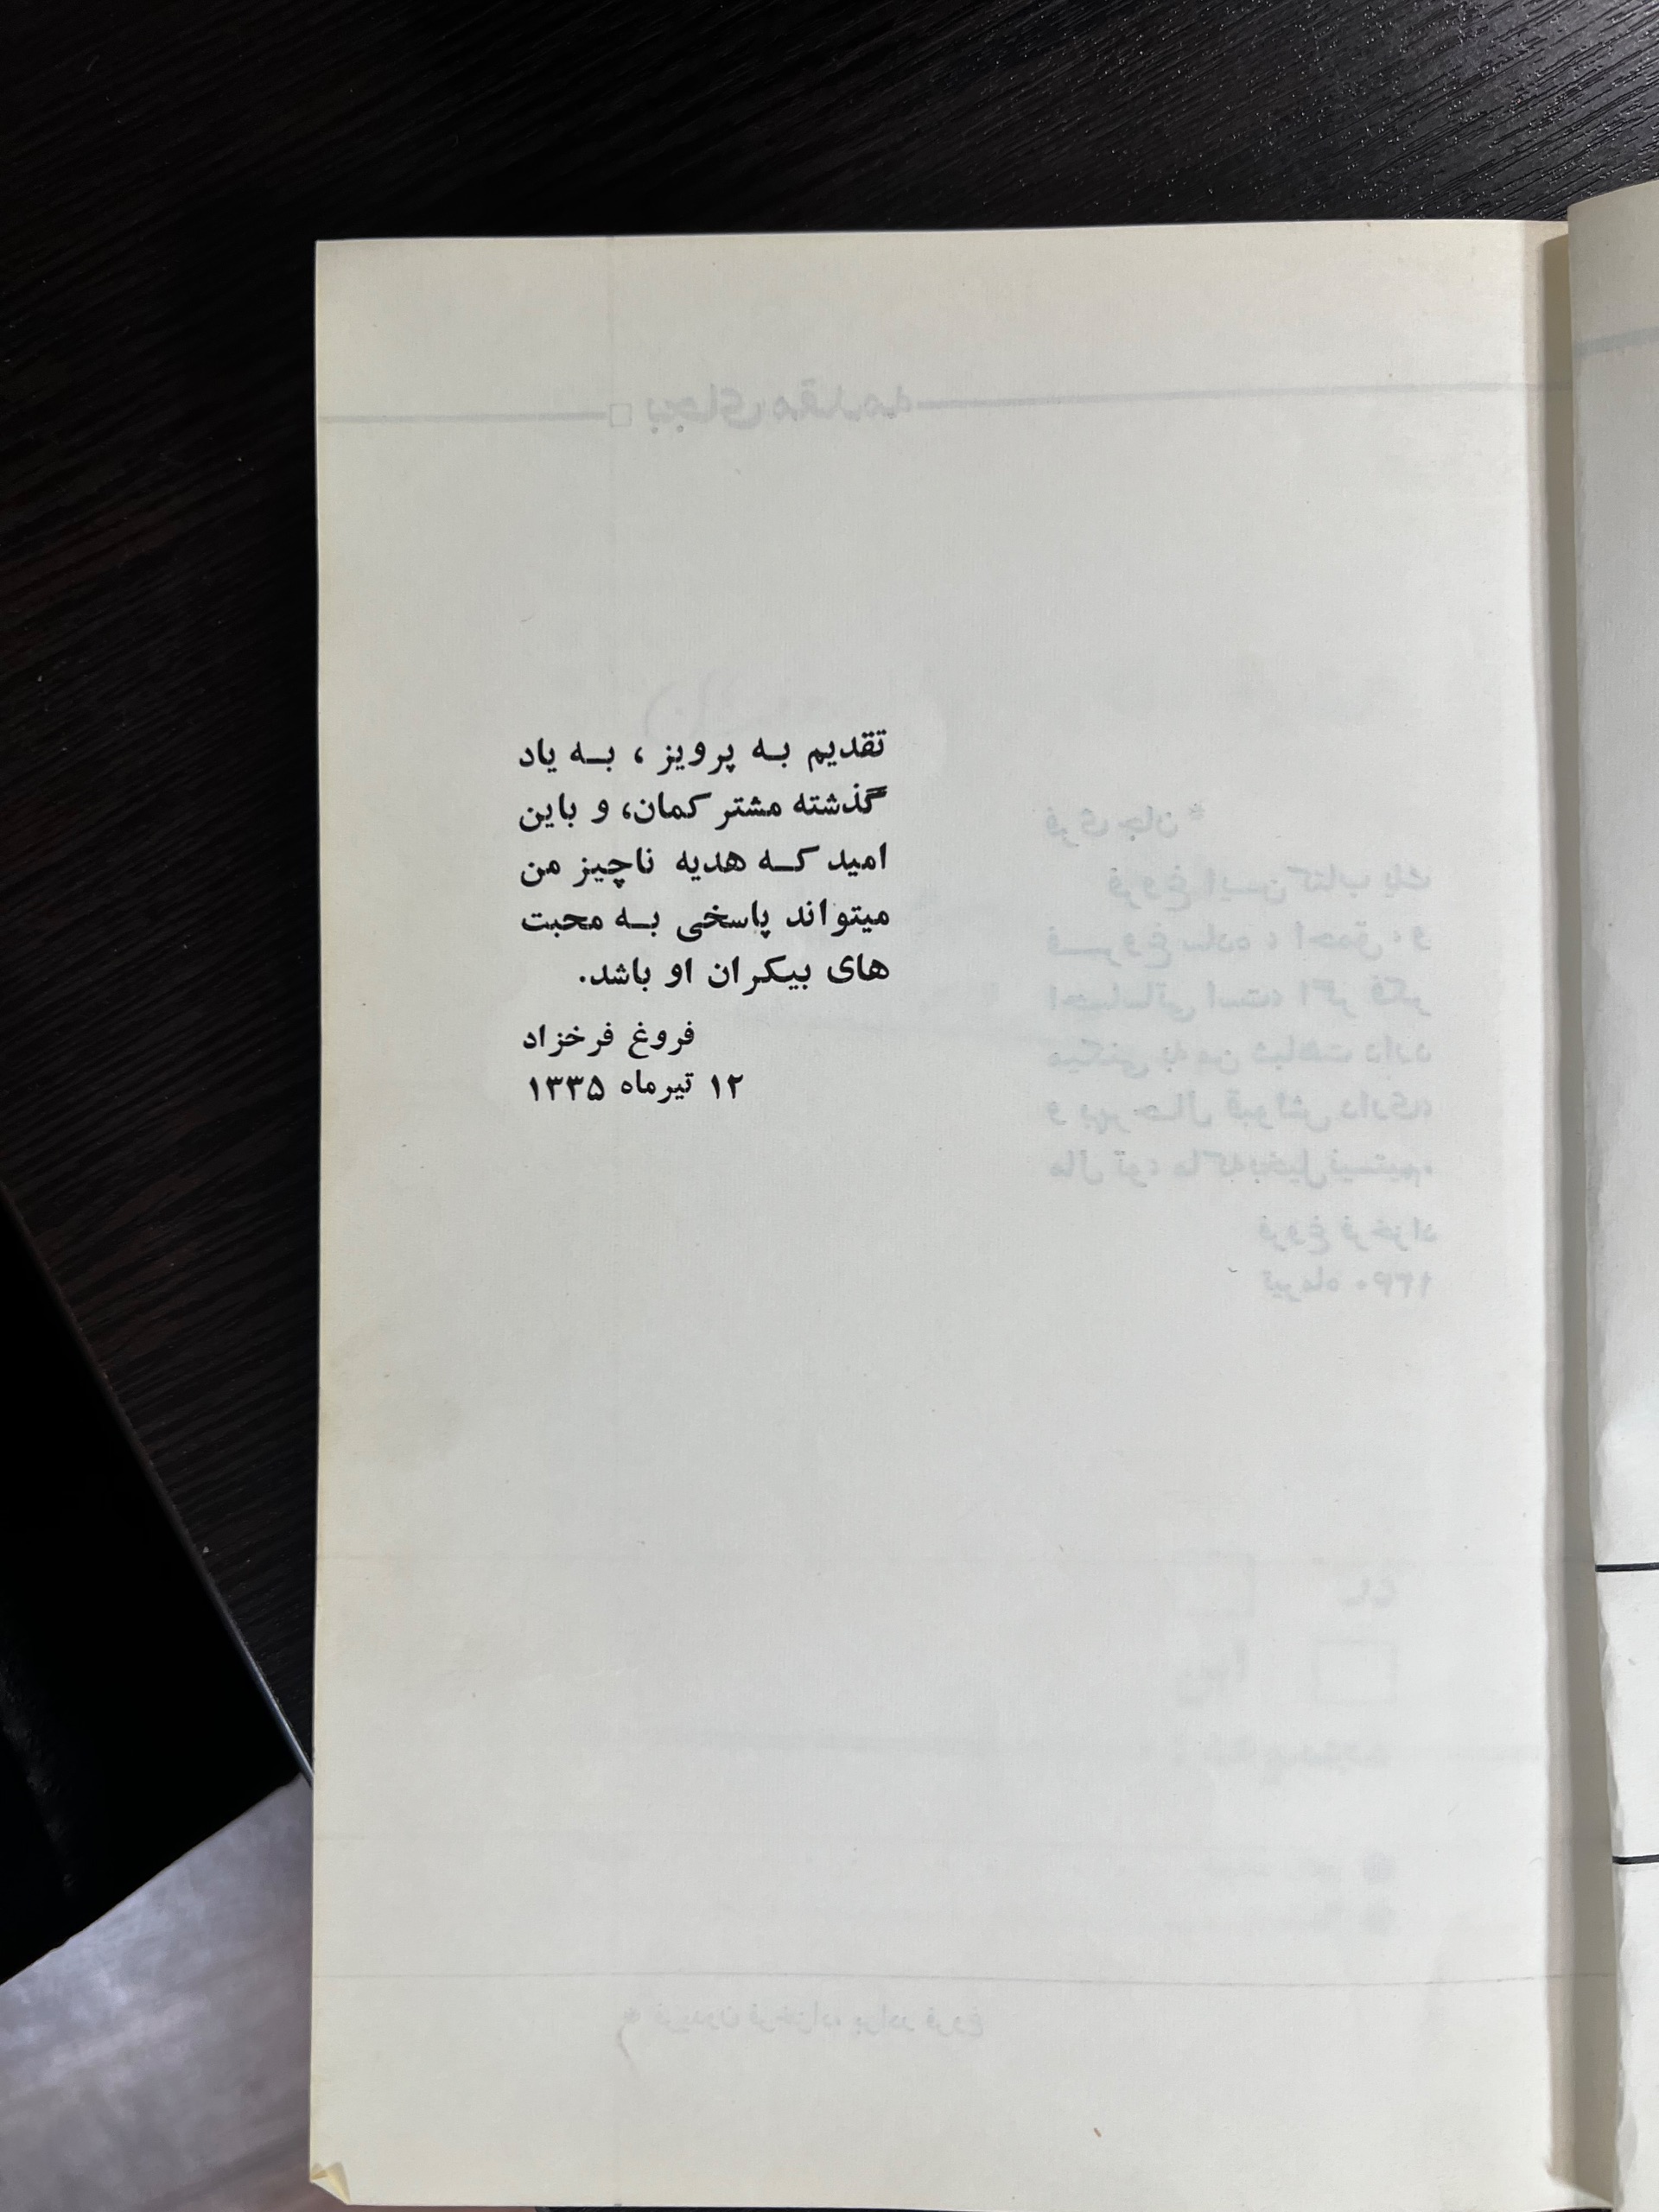 تقدیم به پرویز ، به یاد
گذشته مشترکمان، و باین
امید که هدیه ناچیز من
میتواند پاسخی به محبت
های بیکران او باشد.
فروغ فرخزاد
۱۲ تیرماه ۱۳۳۵